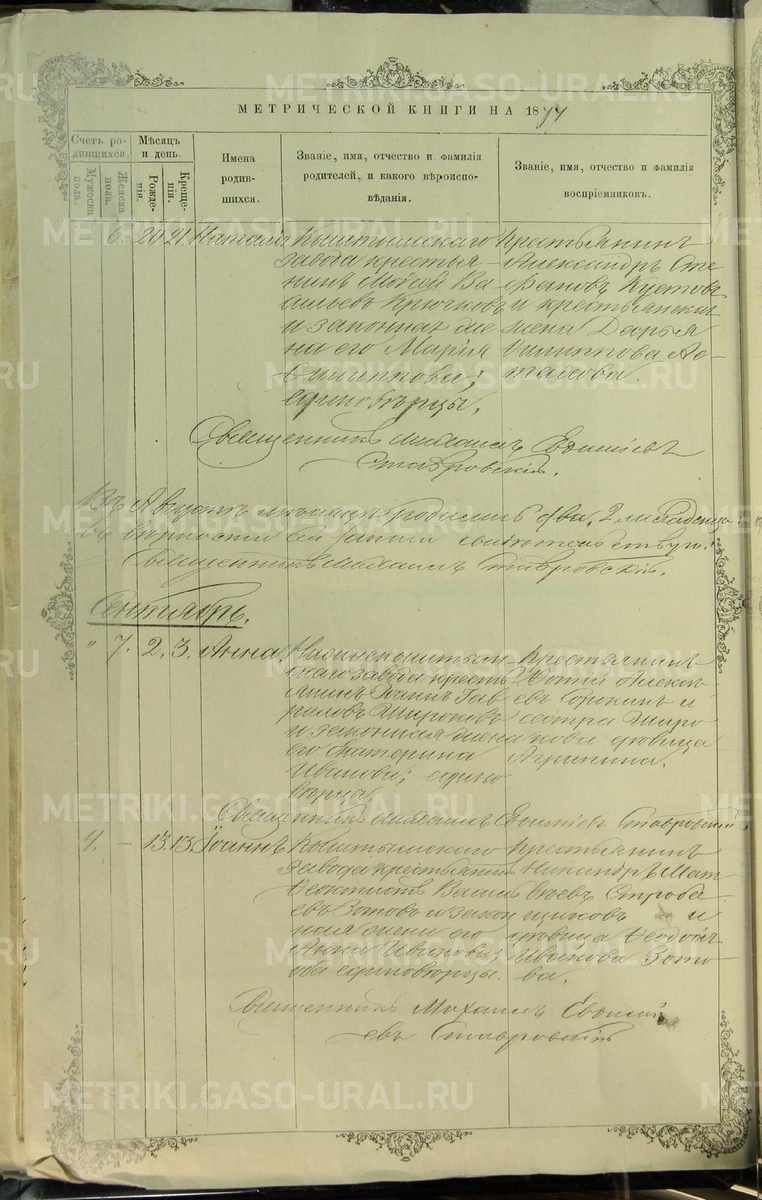 METRIKI.GASO-URAL.RU
МЕТРИЧЕСКОЙ КНИГИ НА 1877
Счетъ родившихся.
Мужеска пола.
Женска пола.
Мѣсяцъ и день
Рожденія.
Крещенія.
Имена родившихся.
Званіе, имя, отчество и фамилія родителей, и какого вѣроисповѣданія.
Званіе, имя, отчество и фамилія воспріемниковъ.
6. 20 21 Наталія
Кыштымскаго
завода крестья-
нинъ Моѵсей Ва-
сильевъ Крючковъ
и законная же-
на его Марія
Филиппова;
единовѣрцы.
Крестьянинъ
Александръ Сте-
фановъ Кустовъ
и крестьянская
жена Дарья
Филиппова Ас-
тахова.
Священникъ Михаилъ Евѳиміевъ
Ставровскій.
Въ Августѣ мѣсяцѣ родились два, 2 младенца:
въ вѣрности сей статьи свидѣтельствую:
Священникъ Михаилъ Ставровскій.
Сентябрь.
" 7. 2. 3. Анна.
скаго завода кресть-
янинъ Іоаннъ Гав-
риловъ Широковъ
и законная жена
его Екатерина
Иванова; едино-
вѣрцы.
Крестьянинъ
Фотій Алексѣ-
евъ Сорокинъ и
сестра Широ-
кова дѣвица
Агрипина.
Священникъ Михаилъ Евѳиміевъ Ставровскій.
4. - 13. 13. Іоаннъ
Кыштымскаго
завода крестьянинъ
Ѳеоктистъ Василь-
евъ Зотовъ и закон-
ная жена его
Анна Иванова;
оба единовѣрцы.
Крестьянинъ
Никандръ Мат-
вѣевъ Строга-
щиковъ и
дѣвица Ѳеодосья
Иванова Зото-
ва.
Священникъ Михаилъ Евѳимі-
евъ Ставровскій